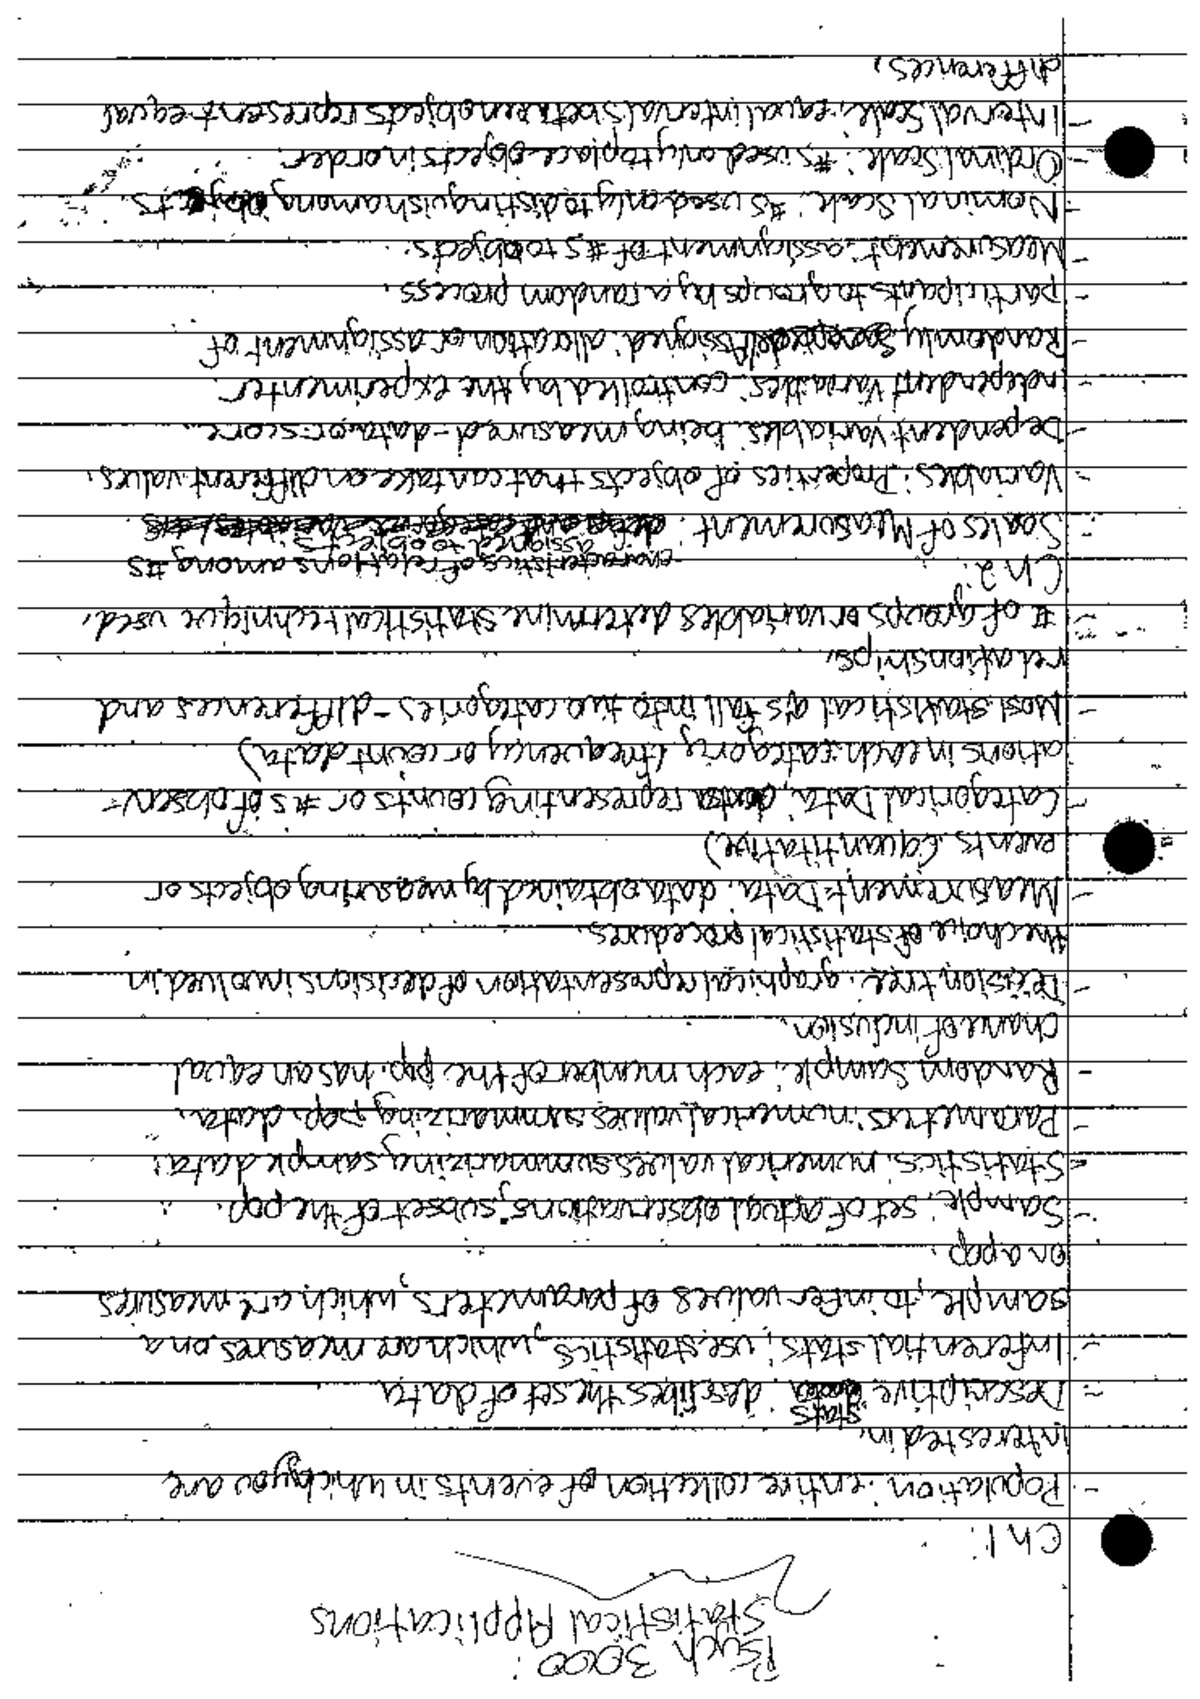 Psych 3000:
Statistical Applications
Ch 1:
- Population: entire collection of events in which you are
interested in.
stats
- Descriptive data: describes the set of data
- Inferential stats: use statistics, which are measures on a
sample, to infer values of parameters, which are measures
on a pop.
- Sample: set of actual observations; subset of the pop.
- Statistics: numerical values summarizing sample data.
- Parameters: numerical values summarizing pop. data.
- Random Sample: each member of the pop. has an equal
chance of inclusion.
- Decision tree: graphical representation of decisions involved in
the choice of statistical procedures.
- Measurement Data: data obtained by measuring objects or
events (quantitative)
- Categorical Data: data representing counts or #s of observ-
ations in each category (frequency or count data)
- Most statistical q's fall into two categories - differences and
relationships.
- # of groups or variables determine statistical technique used.
Ch 2:
characteristics of relations among #s
assigned to objects.
- Scales of Measurement:
- Variables: Properties of objects that can take on different values.
- Dependent Variables: being measured - data or score
- Independent Variables: controlled by the experimenter
- Randomly Assigned: allocation or assignment of
participants to groups by a random process.
- Measurement: assignment of #s to objects.
- Nominal Scale: #s used only to distinguish among objects.
- Ordinal Scale: #s used only to place objects in order.
- Interval Scale: equal intervals between objects represent equal
differences.